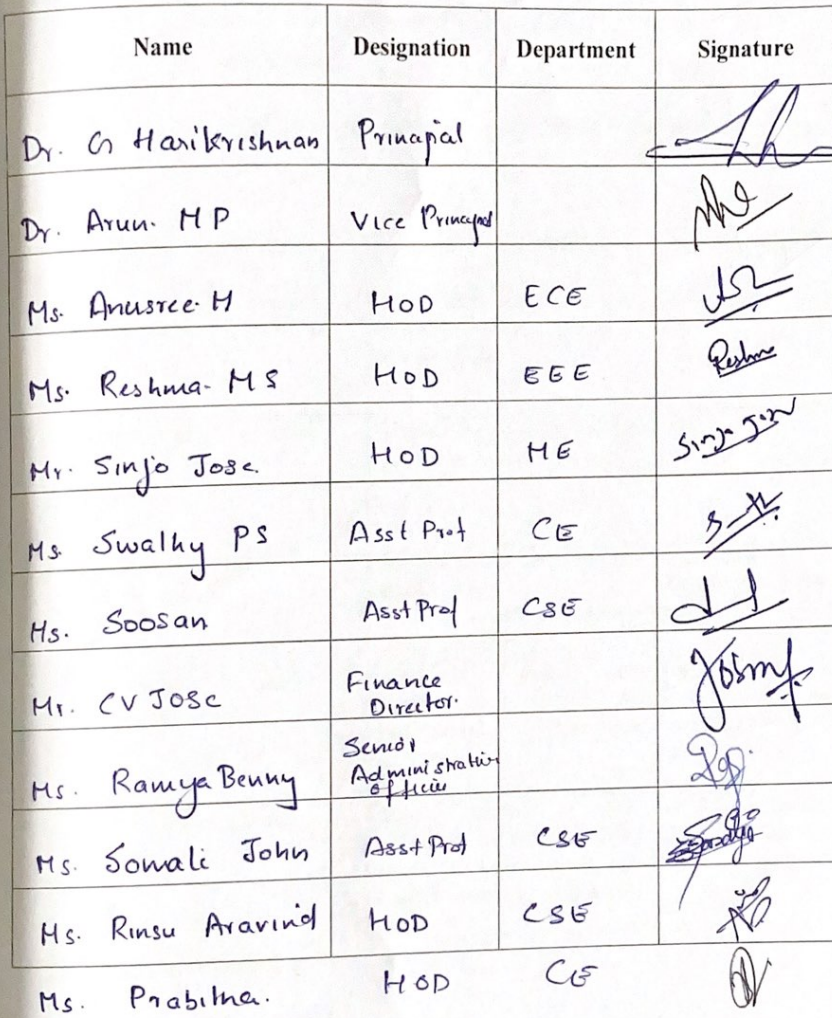 Name Designation Department Signature
Dr. G Harikrishnan Principal
Dr. Arun. M P Vice Principal
Ms. Anusree. M HOD ECE
Ms. Reshma. M S HOD EEE Reshma
Mr. Sinjo Jose HOD ME Sinjo Jose
Ms. Swathy PS Asst Prof CE
Ms. Soosan Asst Prof CSE
Mr. CV Jose Finance
Director.
Ms. Ramya Benny Senior
Administrative
Officer
Ms. Somali John Asst Prof CSE
Ms. Rinsu Aravind HOD CSE
Ms. Prabitha. HOD CE